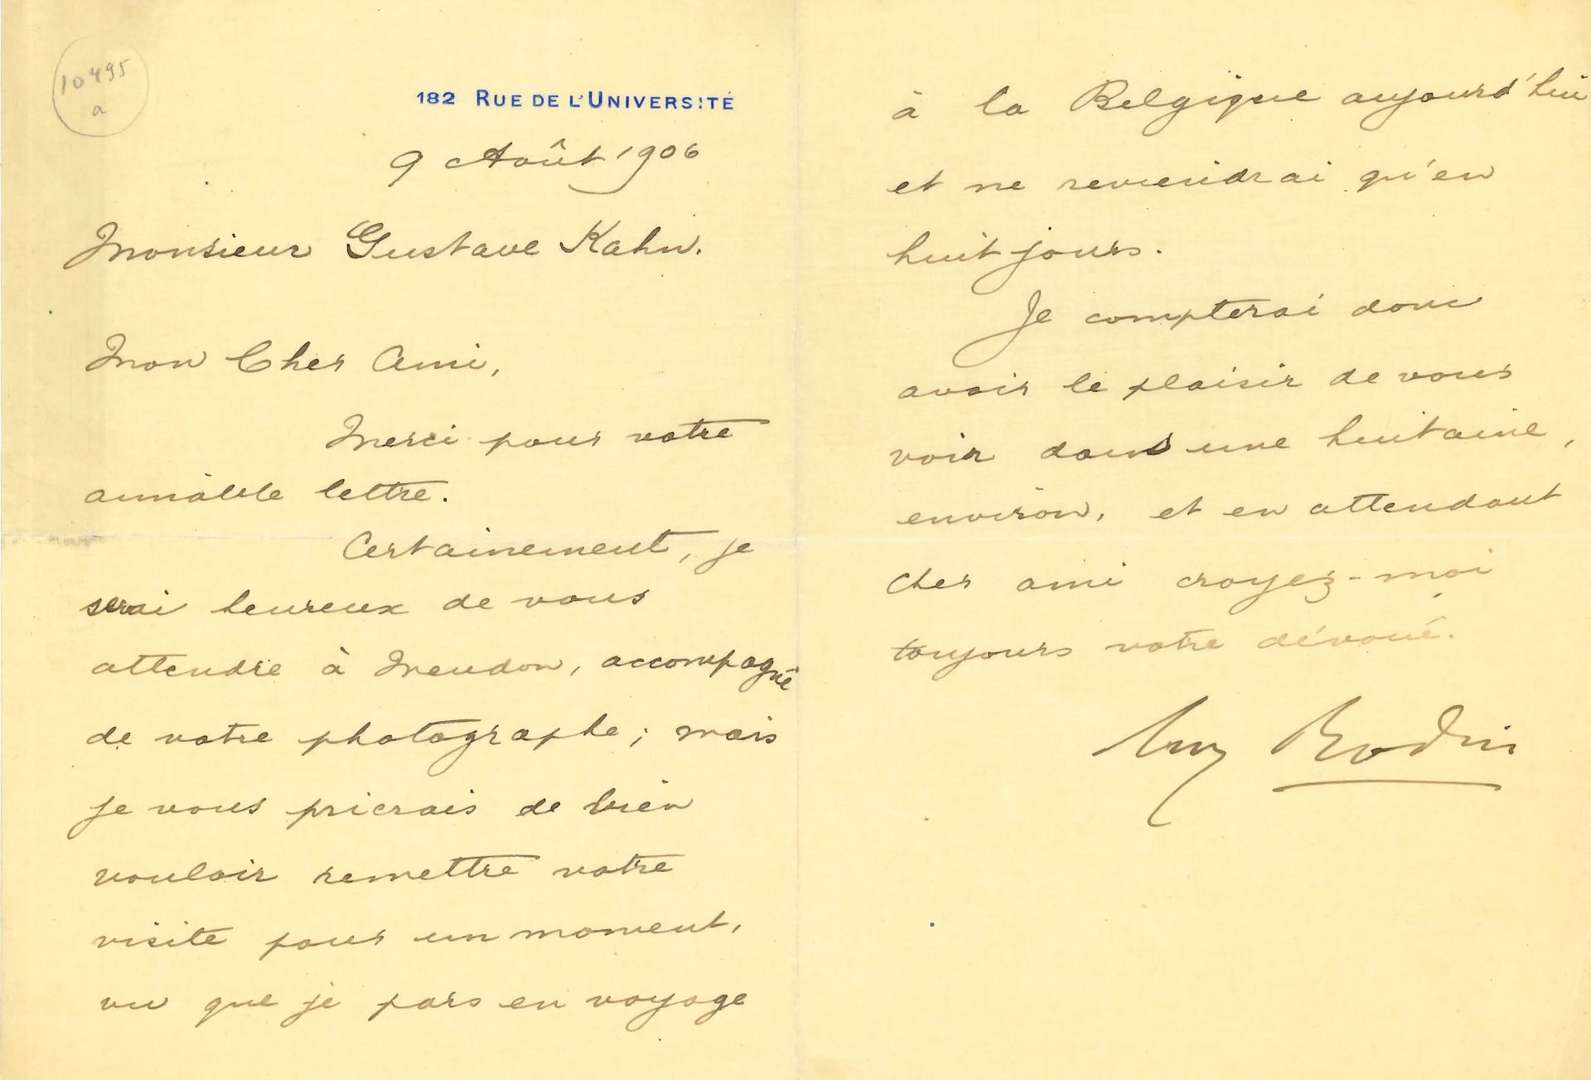 10495
a
182 RUE DE L'UNIVERSITÉ
9 Août 1906
Monsieur Gustave Kahn.
Mon Cher Ami,
Merci pour votre
aimable lettre.
Certainement, je
serai heureux de vous
attendre à Meudon, accompagné
de votre photographe; mais
je vous prierais de bien
vouloir remettre votre
visite pour un moment,
vu que je pars en voyage
à la Belgique aujourd'hui
et ne reviendrai qu'en
huit jours.
Je compterai donc
avoir le plaisir de vous
voir dans une huitaine,
environ, et en attendant
cher ami croyez-moi
toujours votre dévoué.
Aug Rodin